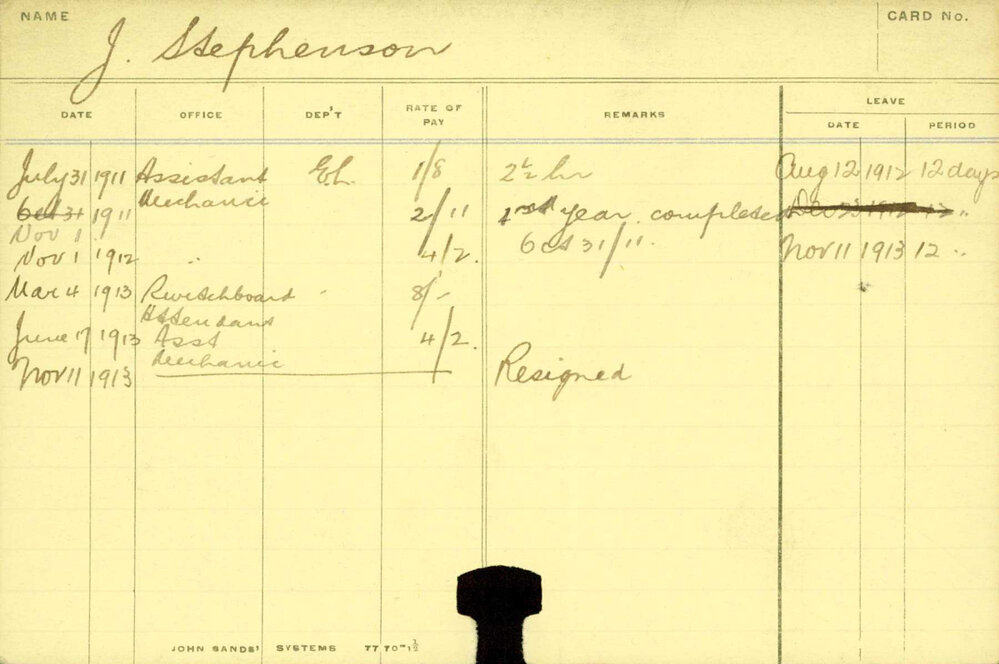 NAME
CARD No.
J. Stephenson
DATE OFFICE DEP'T RATE OF PAY REMARKS LEAVE
DATE PERIOD
July 31 1911 Assistant El. 1/8 Aug 12 1912 12 days
Oct 31 1911 Mechanic 2/11 year completed Dec 23 1912 12 "
Nov 1 Oct 31/11.
Nov 1 1912 " 4/2. Nov 11 1913 12 "
Mar 4 1913 Switchboard " 8/-
Attendant
June 17 1913 Asst 4/2.
Mechanic
Nov 11 1913 Resigned
JOHN SANDS' SYSTEMS